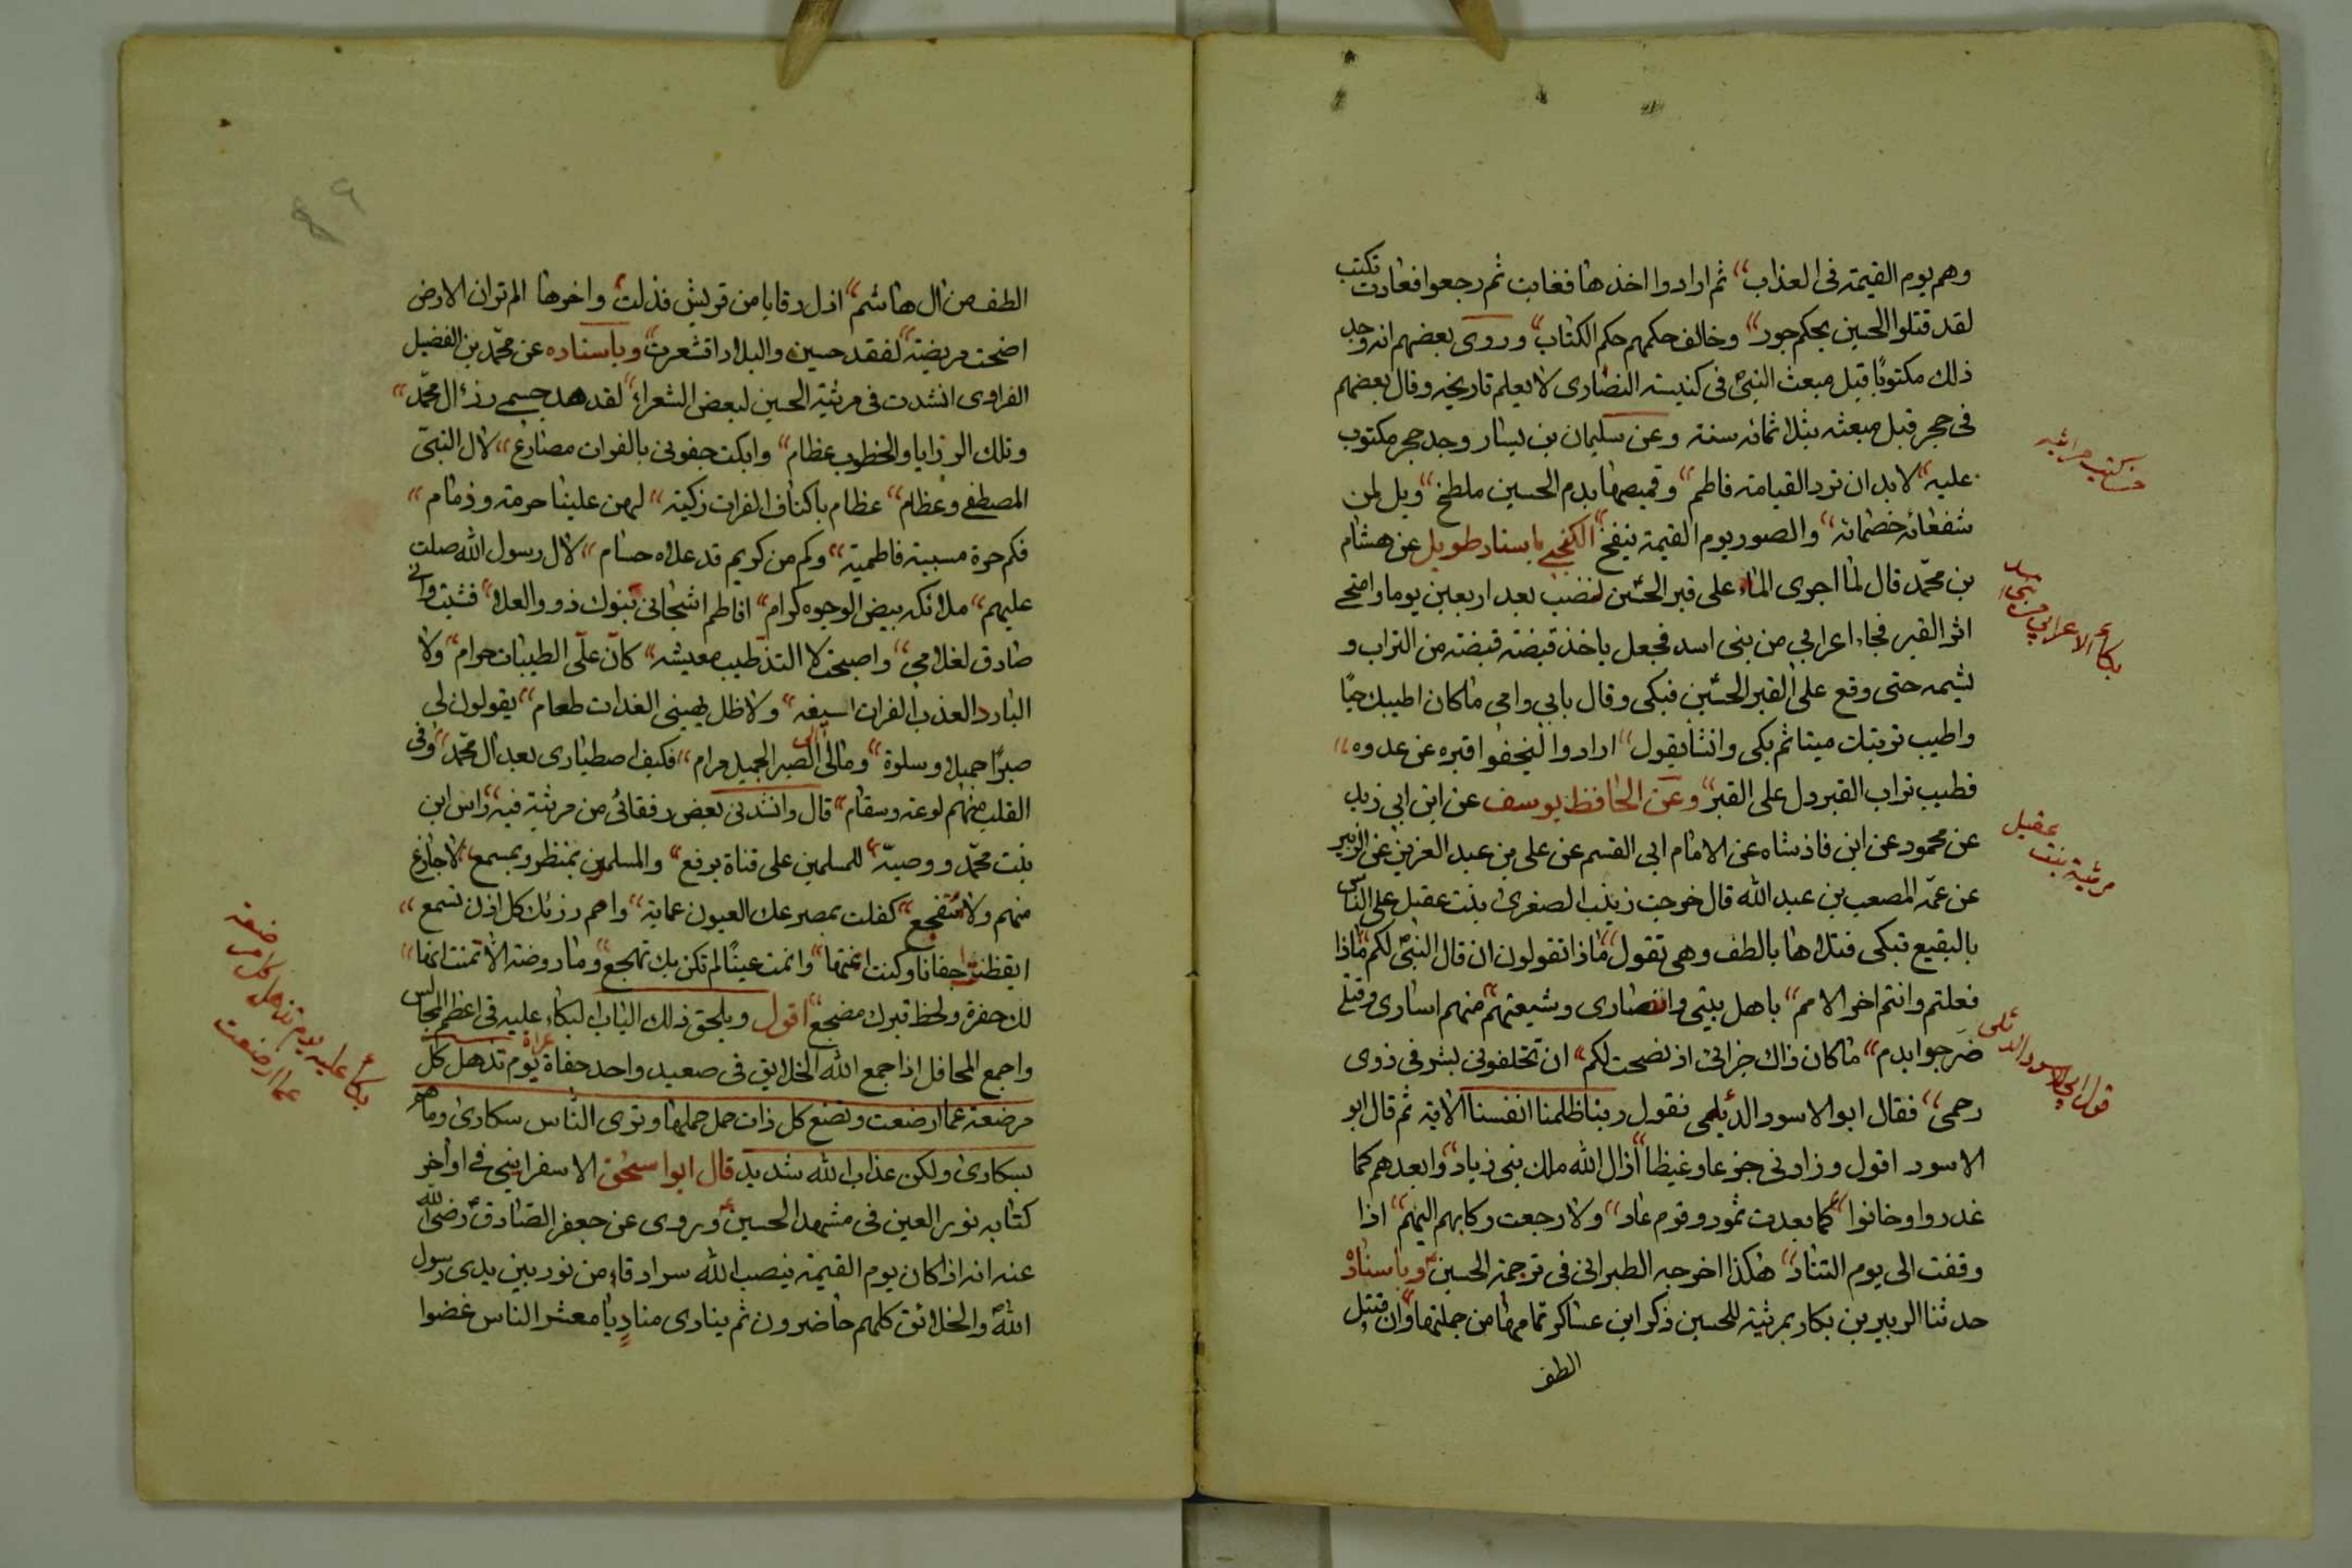 وهم يوم القيمة فى العذاب ثم ارادوا اخذها فغابت ثم رجعوا فعادت تكتب
لقد قتلوا الحسين بحكم جور وخالف حكمهم حكم الكتاب وروى بعضهم انه وجد
ذلك مكتوبا قبل مبعث النبى فى كنيسة النصارى لا يعلم تاريخه وقال بعضهم
فى حجر قبل مبعثه بثلاثمائه سنة وعن سليمان بن يسار وجد حجر مكتوب
عليه لابد ان ترد القيامة فاطم وقميصها بدم الحسين ملطخ ويل لمن
شفعائه خصمائه والصور يوم القيمة ينفخ الكنجى باسناد طويل عن هشام
بن محمد قال لما اجرى الماء على قبر الحسين نضب بعد اربعين يوما وامتحى
اثر القبر فجاء اعرابي من بنى اسد فجعل ياخذ قبضة قبضة من التراب و
يشمه حتى وقع على القبر الحسين فبكى وقال بابي وامى ماكان اطيبك حيا
واطيب تربتك ميتا ثم بكى وانشا يقول ارادوا ليخفوا قبره عن عدوه
فطيب تراب القبر دل على القبر وعن الحافظ يوسف عن ابن ابي زيد
عن محمود عن ابن فاذشاه عن الامام ابى القسم عن على بن عبد العزيز عن الزبير
عن عمه المصعب بن عبد الله قال خرجت زينب الصغرى بنت عقيل على الناس
بالبقيع تبكى قتلاها بالطف وهى تقول ماذا تقولون ان قال النبى لكم ماذا
فعلتم وانتم اخر الامم باهل بيتى وانصارى وشيعتهم منهم اسارى وقتلى
ضرجوا بدم ماكان ذاك جزائى اذ نصحت لكم ان تخلفونى بشر فى ذوى
رحمى فقال ابو الاسود الديلمى نقول ربنا ظلمنا انفسنا الاية ثم قال ابو
الاسود اقول وزادنى جزعا وغيظا ازال الله ملك بنى زياد وابعدهم كما
غدروا وخانوا كما بعدت ثمود وقوم عاد ولا رجعت ركابهم اليهم اذا
وقفت الى يوم التناد هكذا اخرجه الطبرانى فى ترجمة الحسين وباسناده
حدثنا الزبير بن بكار بمرثية للحسين ذكر ابن عساكر تمامها من جملتها وان قتيل
الطف
مرثية بنت
عقيل
قول ابى الاسود الدئلى
الطف من ال هاشم اذل رقابا من قريش فذلت واخرها الم تر ان الارض
اضحت مريضة لفقد حسين والبلاد اقشعرت وباسناده عن محمد بن الفضيل
الفراوى انشدت فى مرثية الحسين لبعض الشعراء لقد هد جسمى رزء ال محمد
وتلك الرزايا والخطوب عظام وابكت جفونى بالفرات مصارع لال النبى
المصطفى وعظام عظام باكناف الفرات زكية لهن علينا حرمة وذمام
فكم حرة مسبية فاطمية وكم من كريم قد علاه حسام لال رسول الله صلت
عليهم ملائكه بيض الوجوه كرام افاطم اشجانى بنوك ذوو العلا فشبت وانى
صادق لغلامى واصبحت لا التذ طيب معيشه كان على الطيبات حرام ولا
البارد العذب الفرات اسيغه ولا ظل يهنينى الغدات طعام يقولون لى
صبرا جميلا وسلوة ومالى الى الصبر الجميل مرام فكيف اصطبارى بعد ال محمد وفى
القلب منهم لوعة وسقام قال وانشدنى بعض رفقائى من مرثية فيه راس ابن
بنت محمد ووصيه للمسلمين على قناة يرفع والمسلمون بمنظر وبمسمع لا جازع
منهم ولا متفجع كفلت بمصرعك العيون عماية واصم رزئك كل اذن تسمع
ايقظت اجفانا وكنت اغتها وانمت عينا لم تكن بك تهجع وما روضة الا تمنت انها
لك حفرة ولحظ قبرك مضجع اقول ويلحق ذلك الباب البكاء عليه فى اعظم المجالس
واجمع المحافل اذا جمع الله الخلايق فى صعيد واحد حفاة عراة يوم تذهل كل
مرضعة عما ارضعت وتضع كل ذات حمل حملها وترى الناس سكارى وما هم
بسكارى ولكن عذاب الله شديد قال ابو اسحق الاسفراينى فى اواخر
كتابه نور العين فى مشهد الحسين وروى عن جعفر الصادق رضى الله
عنه انه اذا كان يوم القيمة ينصب الله سرادقا من نور بين يدى رسول
الله والخلائق كلهم حاضرون ثم ينادى مناد يا معشر الناس غضوا
بكاء عليه يوم تذهل كل مرضعة
عما ارضعت